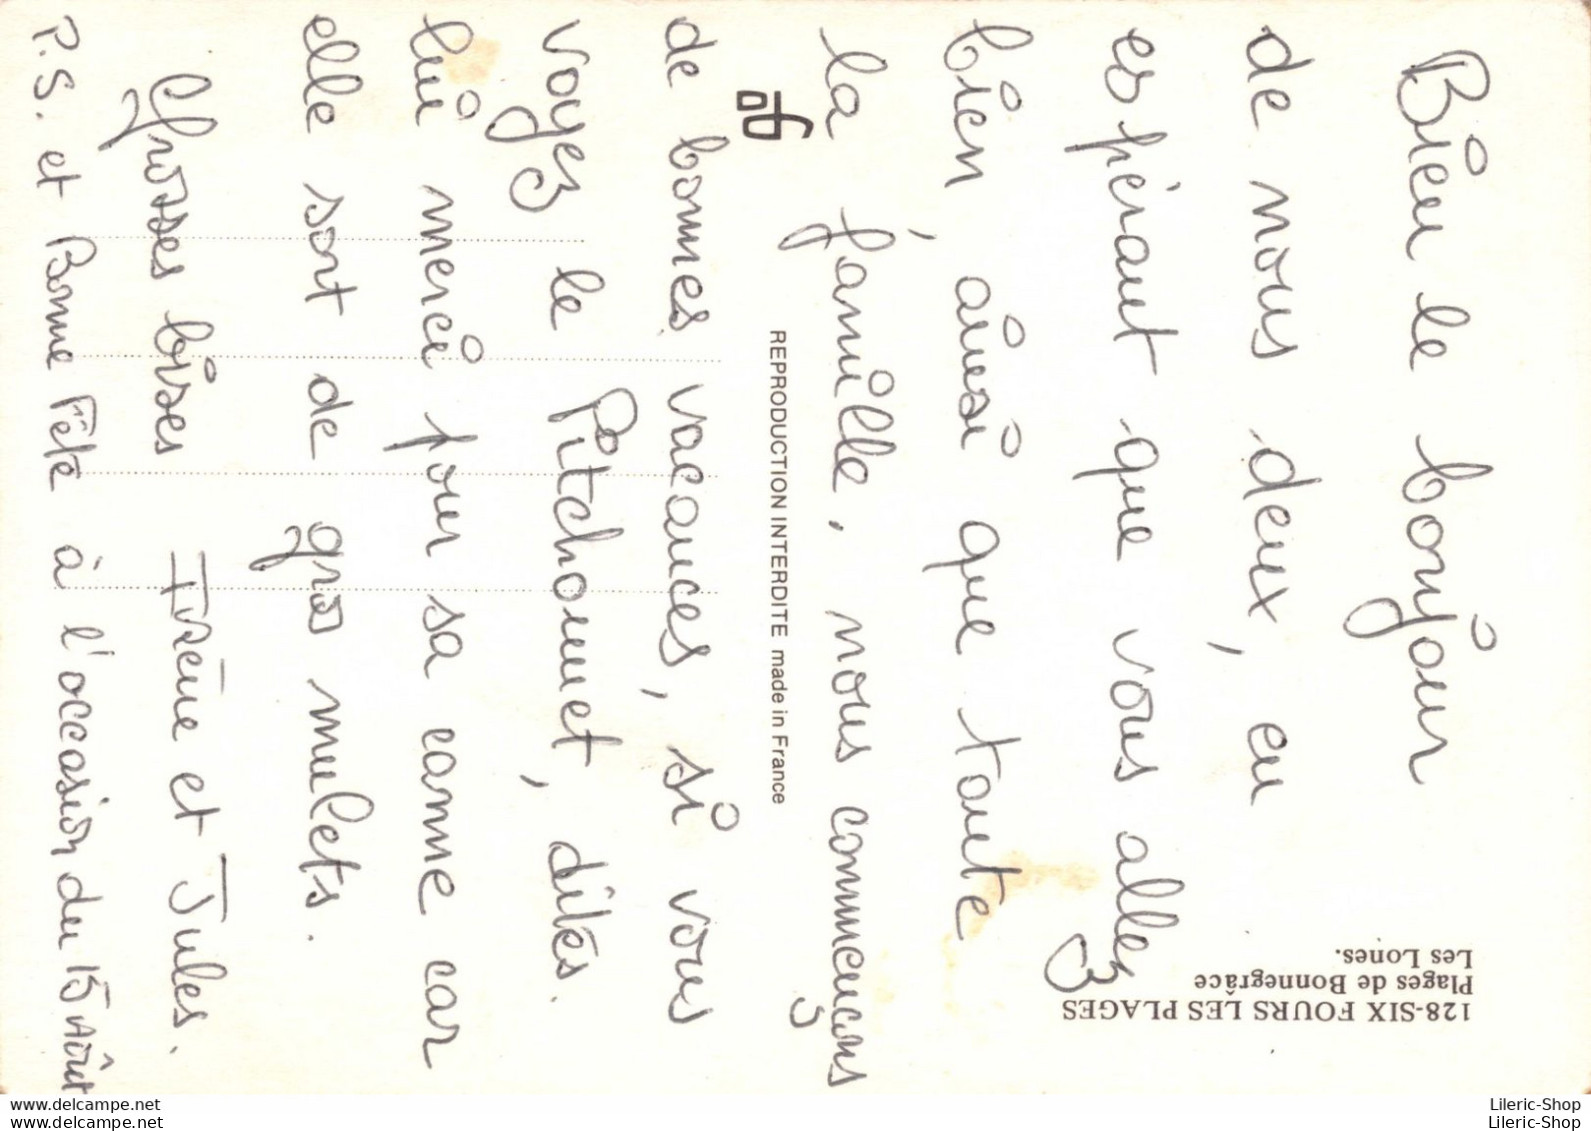 Bien le bonjour
de nous deux, en
espérant que vous allez
bien, ainsi que toute
la famille, nous commençons
de bonnes vacances, si vous
voyez le Pitchounet, dites.
lui merci pour sa canne car
elle sort de gros mulets.
Grosses bises Irène et Jules.
P.S. et Bonne Fête à l'occasion du 15 Août
REPRODUCTION INTERDITE made in France
128-SIX FOURS LES PLAGES
Plages de Bonnegrâce
Les Lones.
www.delcampe.net
www.delcampe.net
Lileric-Shop
Lileric-Shop